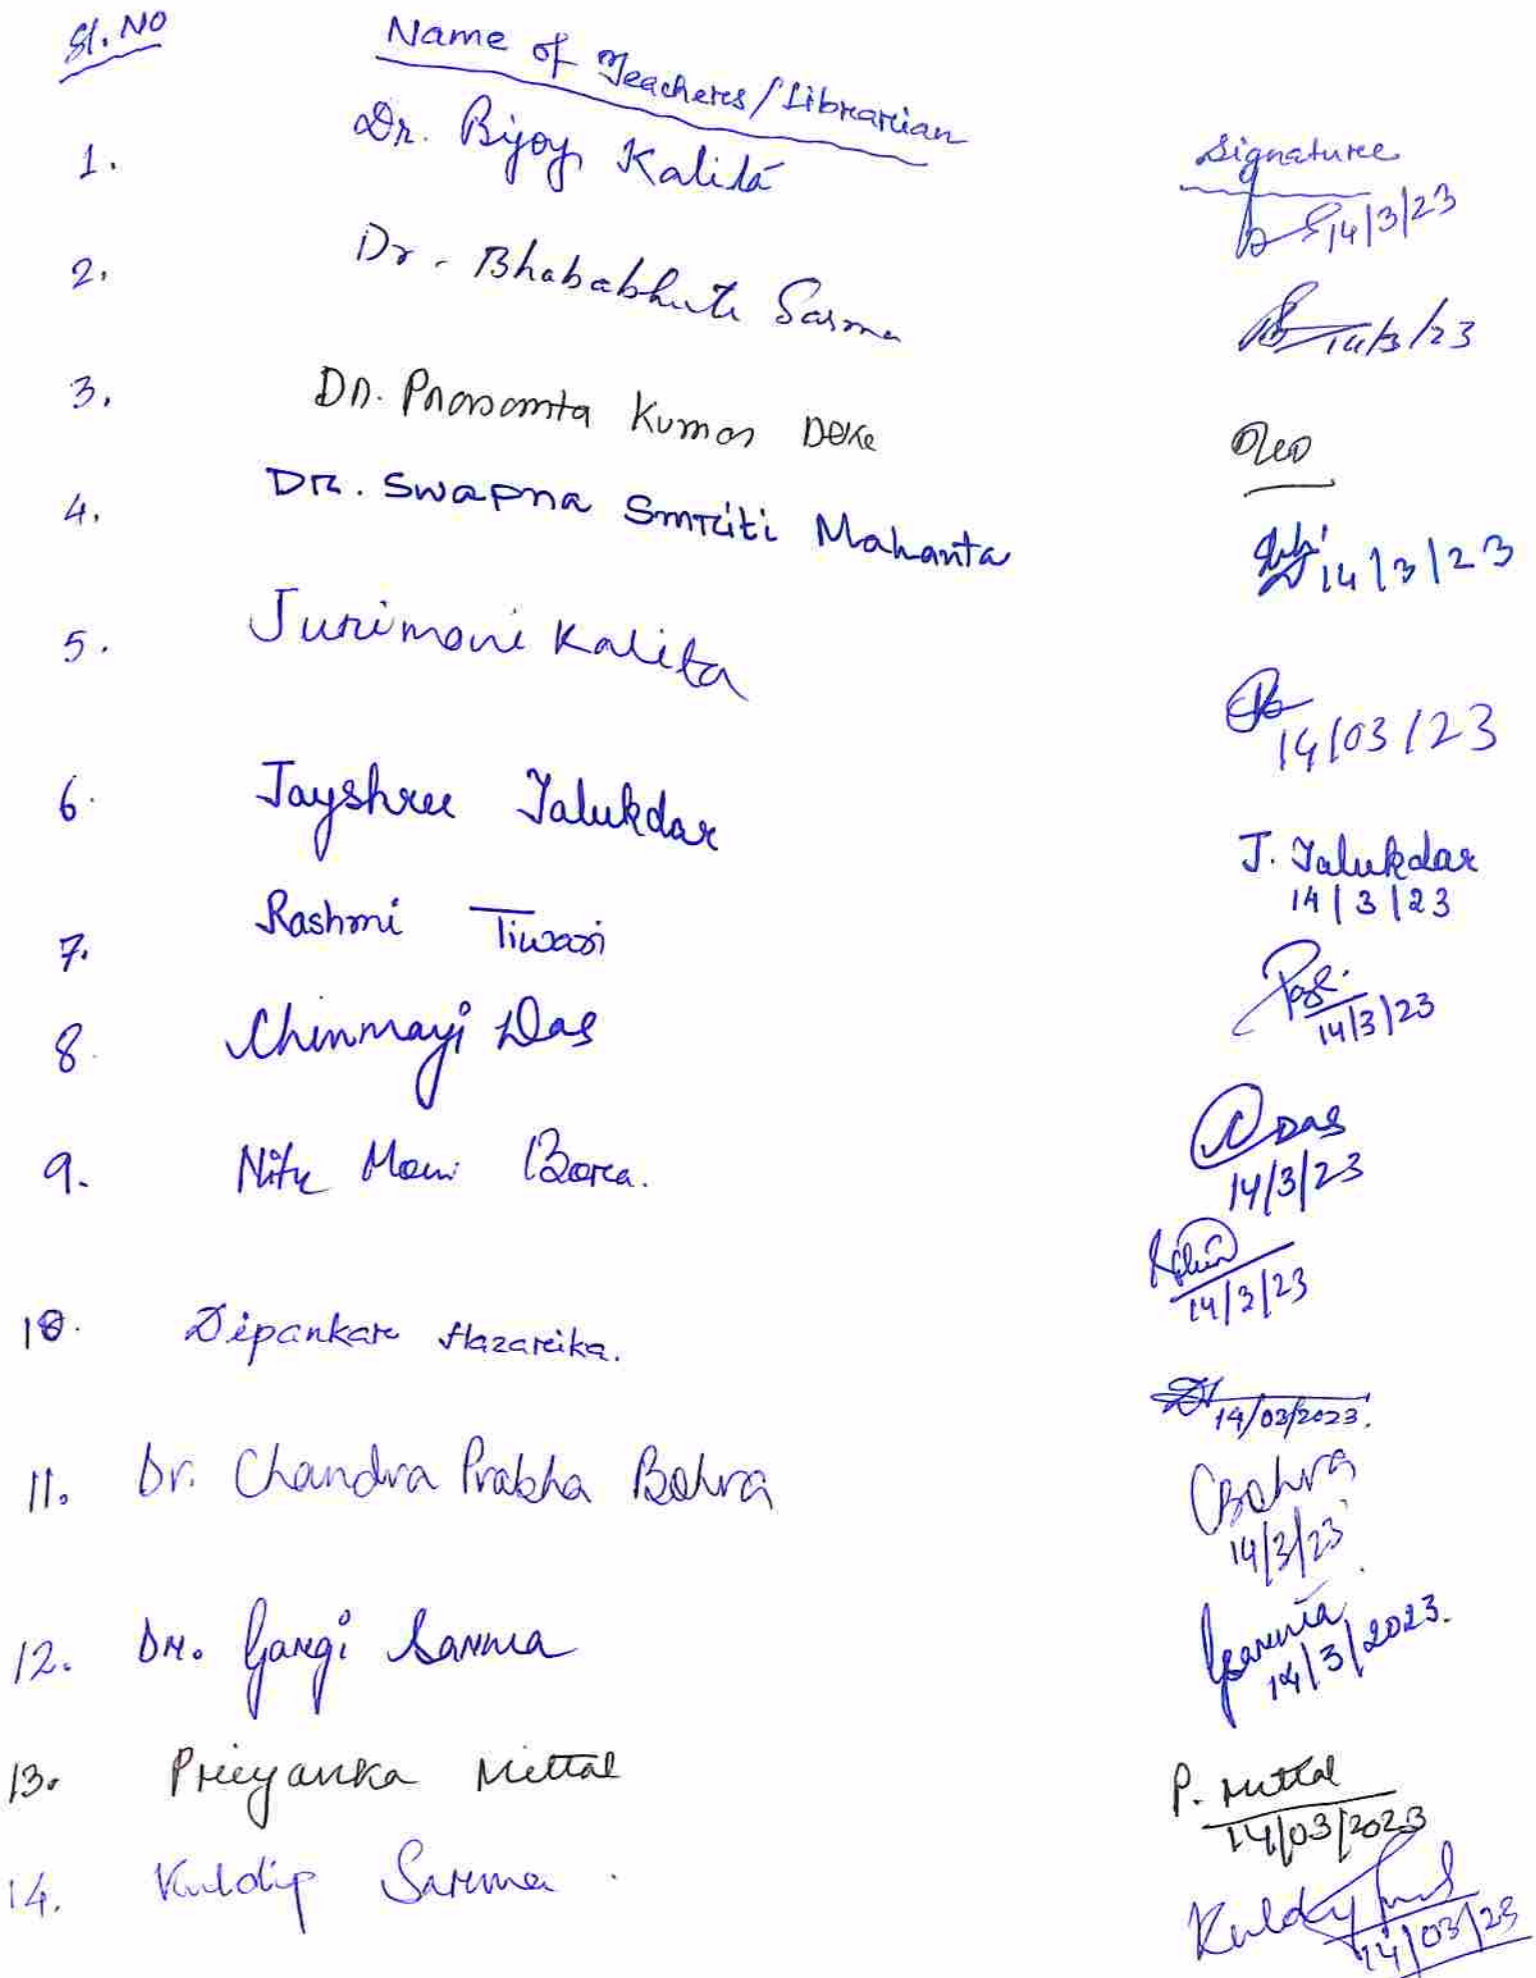 Sl. No Name of Teacheres/Librarian Signature
1. Dr. Bijoy Kalita 14/3/23
2. Dr. Bhababhuti Sarma 14/3/23
3. Dr. Prasanta Kumar Deka
4. DR. Swapna Smriti Mahanta 14/3/23
5. Jurimoni Kalita 14/03/23
6. Jayshree Talukdar J. Talukdar
14/3/23
7. Rashmi Tiwari
14/3/23
8. Chinmayi Das Das
14/3/23
9. Nitu Moni Bora.
14/3/23
10. Dipankar Hazarika.
14/03/2023.
11. Dr. Chandra Prabha Bohra CBohra
14/3/23
12. Dr. Gargi Sarma GSarma
14/3/2023.
13. Priyanka Mittal P. Mittal
14/03/2023
14. Kuldip Sarma. Kuldip
14/03/23